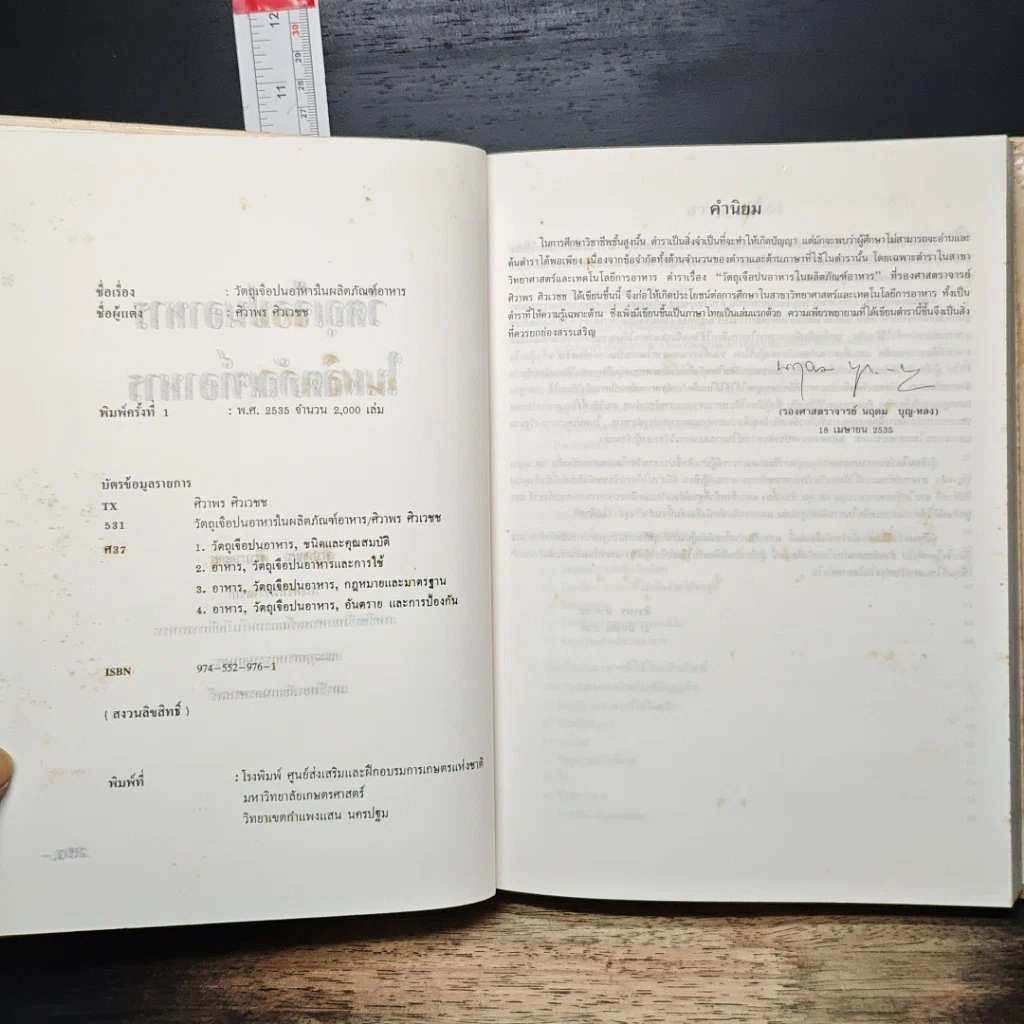 ชื่อเรื่อง : วัตถุเจือปนอาหารในผลิตภัณฑ์อาหาร
ชื่อผู้แต่ง : ศิวาพร ศิวเวชช
พิมพ์ครั้งที่ 1 : พ.ศ. 2535 จำนวน 2,000 เล่ม
บัตรข้อมูลรายการ
TX ศิวาพร ศิวเวชช
531 วัตถุเจือปนอาหารในผลิตภัณฑ์อาหาร/ศิวาพร ศิวเวชช
ศ37 1. วัตถุเจือปนอาหาร, ชนิดและคุณสมบัติ
2. อาหาร, วัตถุเจือปนอาหารและการใช้
3. อาหาร, วัตถุเจือปนอาหาร, กฎหมายและมาตรฐาน
4. อาหาร, วัตถุเจือปนอาหาร, อันตราย และการป้องกัน
ISBN 974-552-976-1
( สงวนลิขสิทธิ์ )
พิมพ์ที่ : โรงพิมพ์ ศูนย์ส่งเสริมและฝึกอบรมการเกษตรแห่งชาติ
มหาวิทยาลัยเกษตรศาสตร์
วิทยาเขตกำแพงแสน นครปฐม
คำนิยม
ในการศึกษาวิชาชีพชั้นสูงนั้น ตำราเป็นสิ่งจำเป็นที่จะทำให้เกิดปัญญา แต่มักจะพบว่าผู้ศึกษาไม่สามารถจะอ่านและ
ค้นตำราได้พอเพียง เนื่องจากข้อจำกัดทั้งด้านจำนวนของตำราและด้านภาษาที่ใช้ในตำรานั้น โดยเฉพาะตำราในสาขา
วิทยาศาสตร์และเทคโนโลยีการอาหาร ตำราเรื่อง "วัตถุเจือปนอาหารในผลิตภัณฑ์อาหาร" ที่รองศาสตราจารย์
ศิวาพร ศิวเวชช ได้เขียนขึ้นนี้ จึงก่อให้เกิดประโยชน์ต่อการศึกษาในสาขาวิทยาศาสตร์และเทคโนโลยีการอาหาร ทั้งเป็น
ตำราที่ให้ความรู้เฉพาะด้าน ซึ่งเพิ่งมีเขียนขึ้นเป็นภาษาไทยเป็นเล่มแรกด้วย ความเพียรพยายามที่ได้เขียนตำรานี้ขึ้นจึงเป็นสิ่ง
ที่ควรยกย่องสรรเสริญ
(รองศาสตราจารย์ นฤดม บุญ-หลง)
18 เมษายน 2535
12
30
29
11
28
27